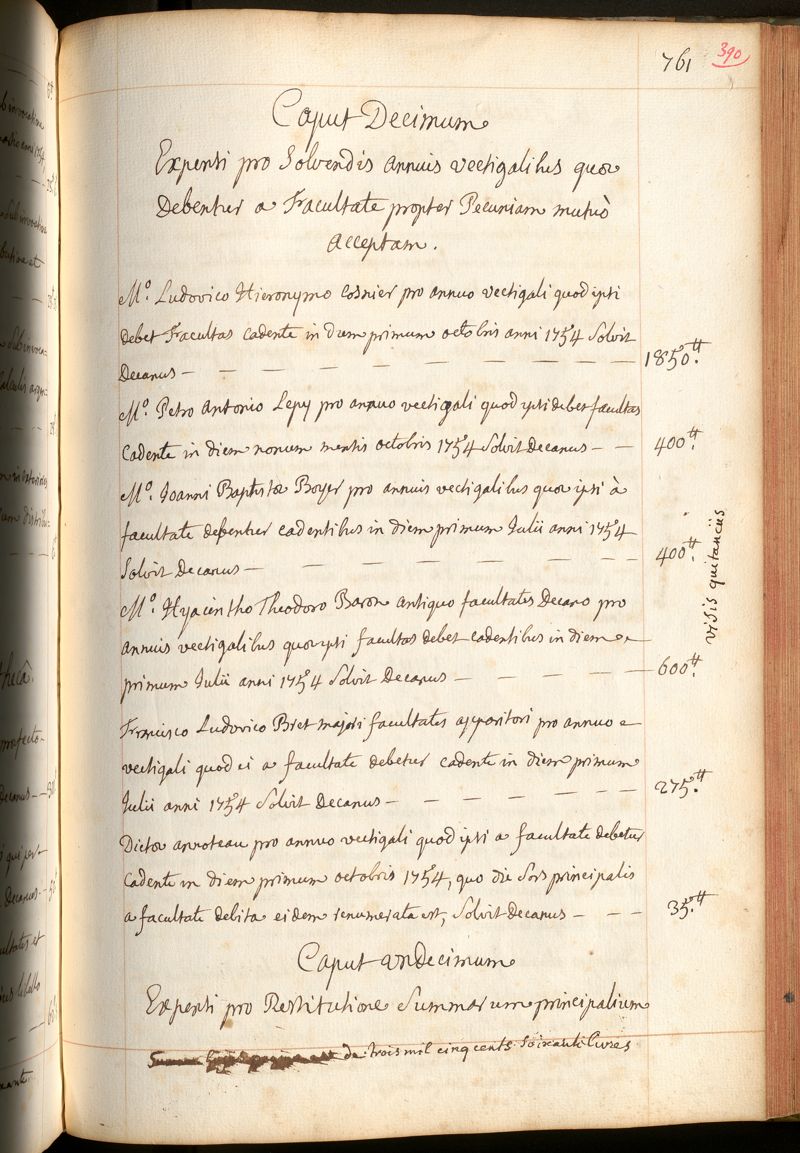 761 390
Caput Decimum
Expensi pro Solvendis annuis vectigalibus quæ
Debentur a Facultate propter Pecuniam mutuò
acceptam.
M.º Ludovico Hieronymo Cosnier pro annuo vectigali quod ipsi
debet Facultas cadente in diem primum octobris anni 1754 Solvit
Decanus — — — — — — — — 1850.tt
M.º Petro Antonio Lepy pro annuo vectigali quod ipsi debet facultas
Cadente in diem nonum mensis octobris 1754 Solvit Decanus — — 400.tt
M.º Joanni Baptistæ Boyer pro annuis vectigalibus quæ ipsi à
facultate debentur cadentibus in diem primum Julii anni 1754
Solvit Decanus — — — — — — — 400.tt
M.º Hyacintho Theodoro Baron antiquo facultatis Decano pro
annuis vectigalibus quæ ipsi facultas debet cadentibus in diem
primum Julii anni 1754 Solvit Decanus — — — — — 600.tt
visis quitanciis
Francisco Ludovico Bret majori facultatis apparitori pro annuo
vectigali quod ei a facultate debetur cadente in diem primum
Julii anni 1754 Solvit Decanus — — — — — — — 275.tt
Dictæ arnoteau pro annuo vectigali quod ipsi a facultate debetur
Cadente in diem primum octobris 1754, quo die Sors principalis
a facultate debita eidem renumerata est, Solvit Decanus — — — 35.tt
Caput undecimum
Expensi pro Restitutione Summarum principalium
de trois mil cinq cents Soixante livres